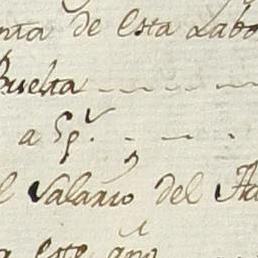 nta de Esta Labo
Buelta
a 5 p.
l Salario del
a este año